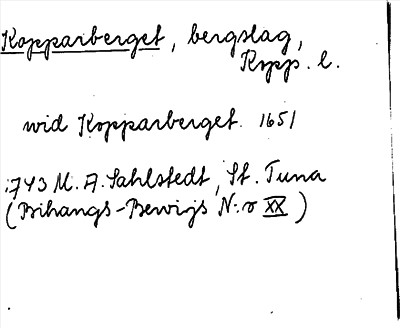 Kopparberget, bergslag,
Kopp. l.
wid Kopparberget. 1651
1743 M. A. Sahlstedt, St. Tuna
(Bihangs-Bewijs N:o XX)